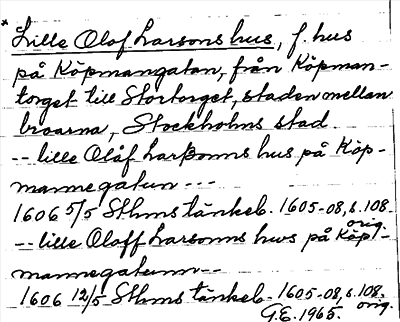 * Lille Olof Larsons hus, f. hus
på Köpmangatan, från Köpman-
torget till Stortorget, staden mellan
broarna, Stockholms stad.
-- lille Olåf Larßonns hus på Köp-
mannegatun ---
1606 5/5 Sthms tänkeb. 1605-08, s. 108.
orig.
-- lille Oloff Larsonns hws på Köp-
mannegatunn--
1606 12/5 Sthms tänkeb. 1605-08, s. 108.
G.E. 1965. orig.